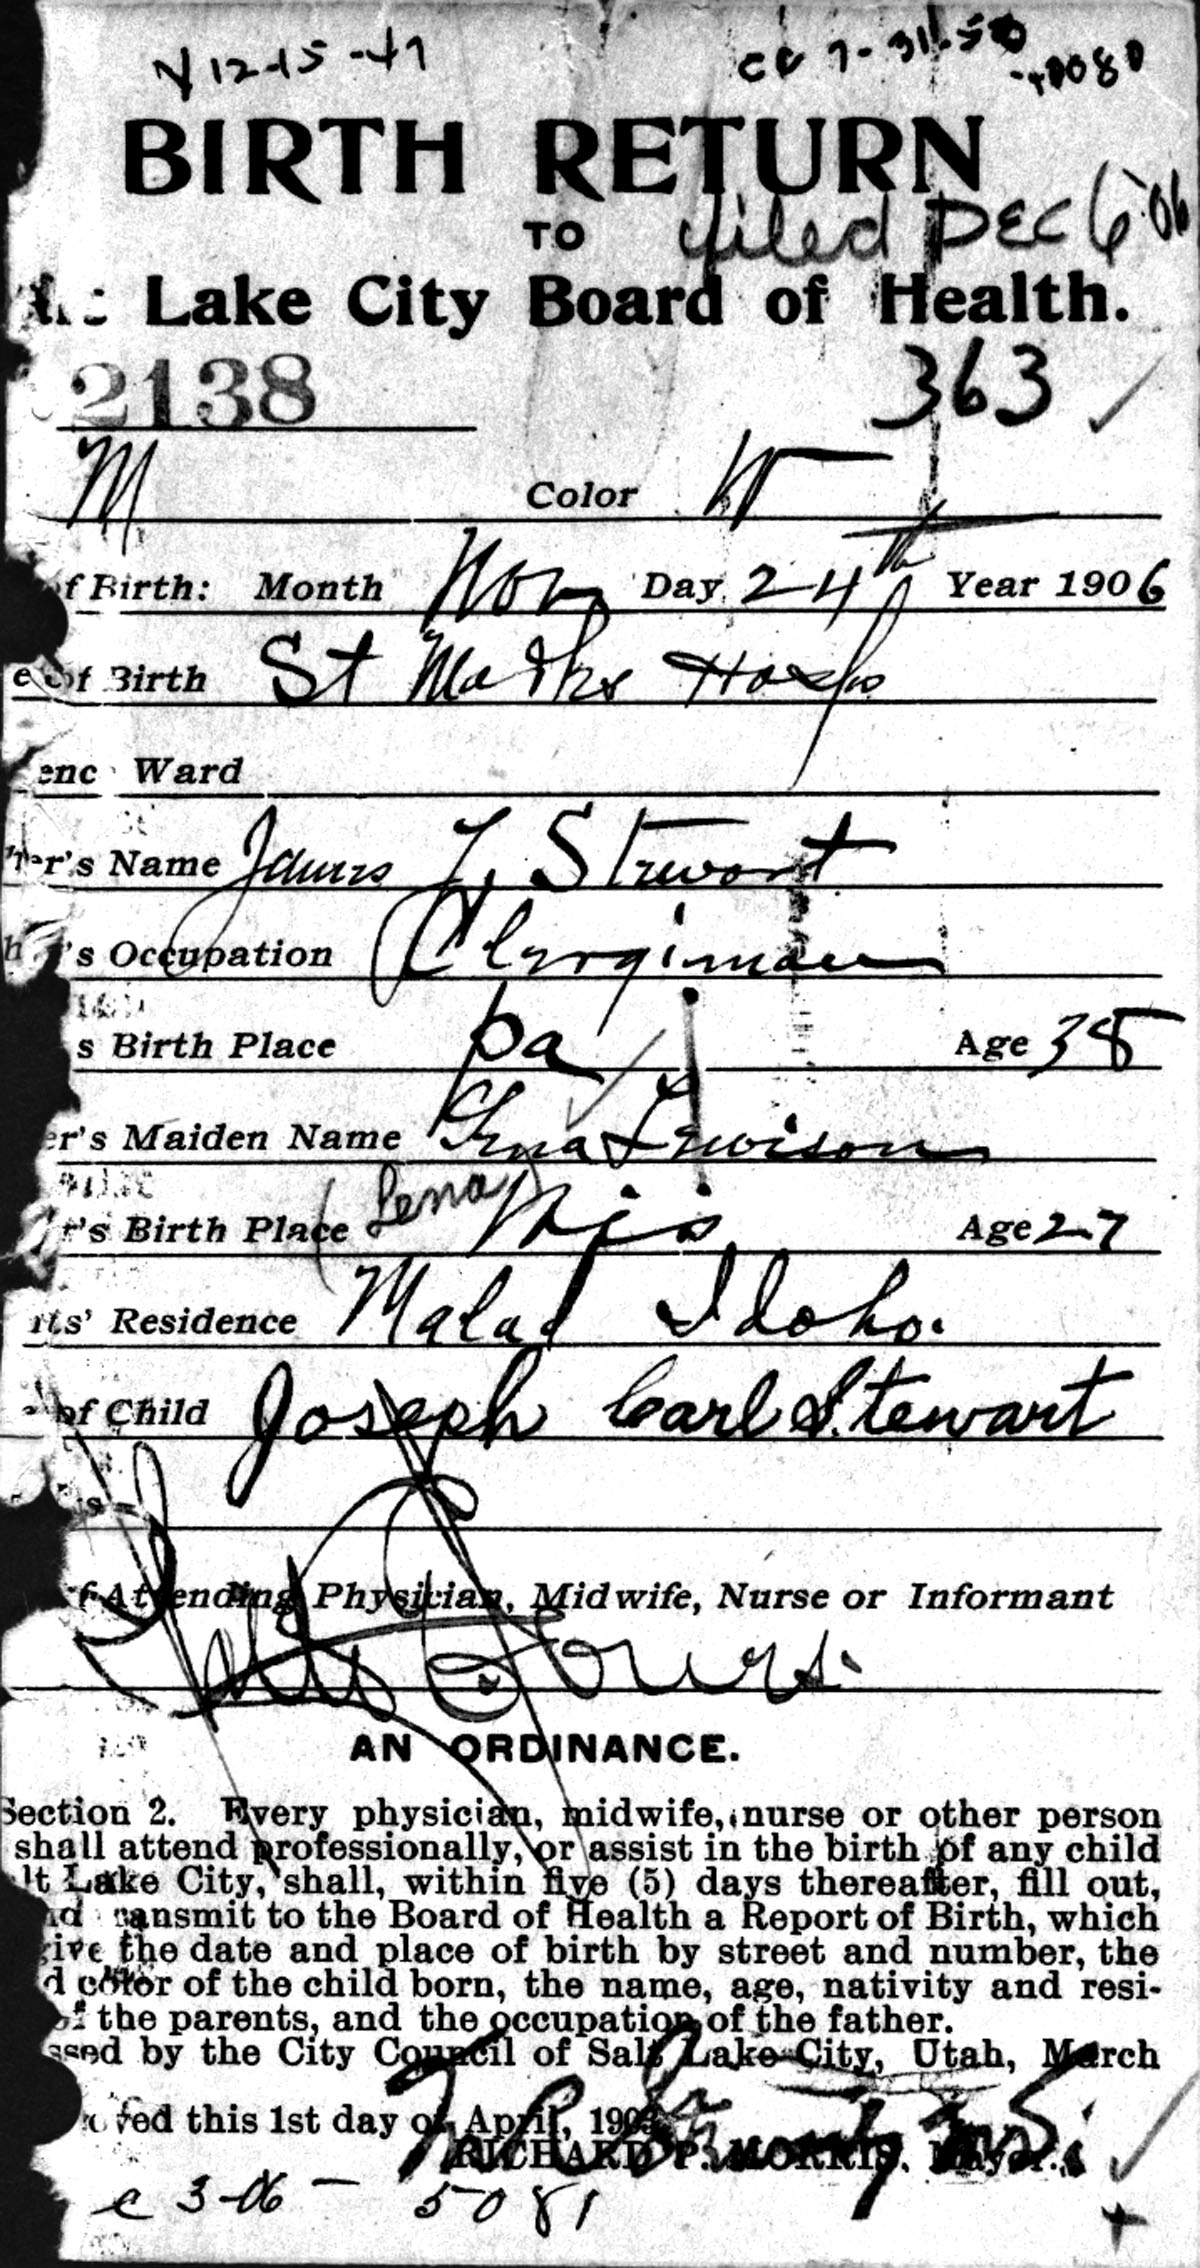 12-15-47
cc 7-31-50
BIRTH RETURN
TO filed DEC 6 '06
Lake City Board of Health.
2138 363
M Color W
of Birth: Month Nov Day 24th Year 1906
e of Birth St Marks Hosp
enc Ward
er's Name James T. Stewart
's Occupation Clergiman
s Birth Place Pa Age 38
er's Maiden Name Lena Lewison
(Lena)
r's Birth Place Wis Age 27
ts' Residence Malad Idaho.
of Child Joseph Carl Stewart
of Attending Physician, Midwife, Nurse or Informant
AN ORDINANCE.
Section 2. Every physician, midwife, nurse or other person
shall attend professionally, or assist in the birth of any child
lt Lake City, shall, within five (5) days thereafter, fill out,
nd transmit to the Board of Health a Report of Birth, which
give the date and place of birth by street and number, the
d color of the child born, the name, age, nativity and resi-
of the parents, and the occupation of the father.
ssed by the City Council of Salt Lake City, Utah, March
oved this 1st day of April, 190
RICHARD P. MORRIS, Mayor.
c 3-06 - 5081